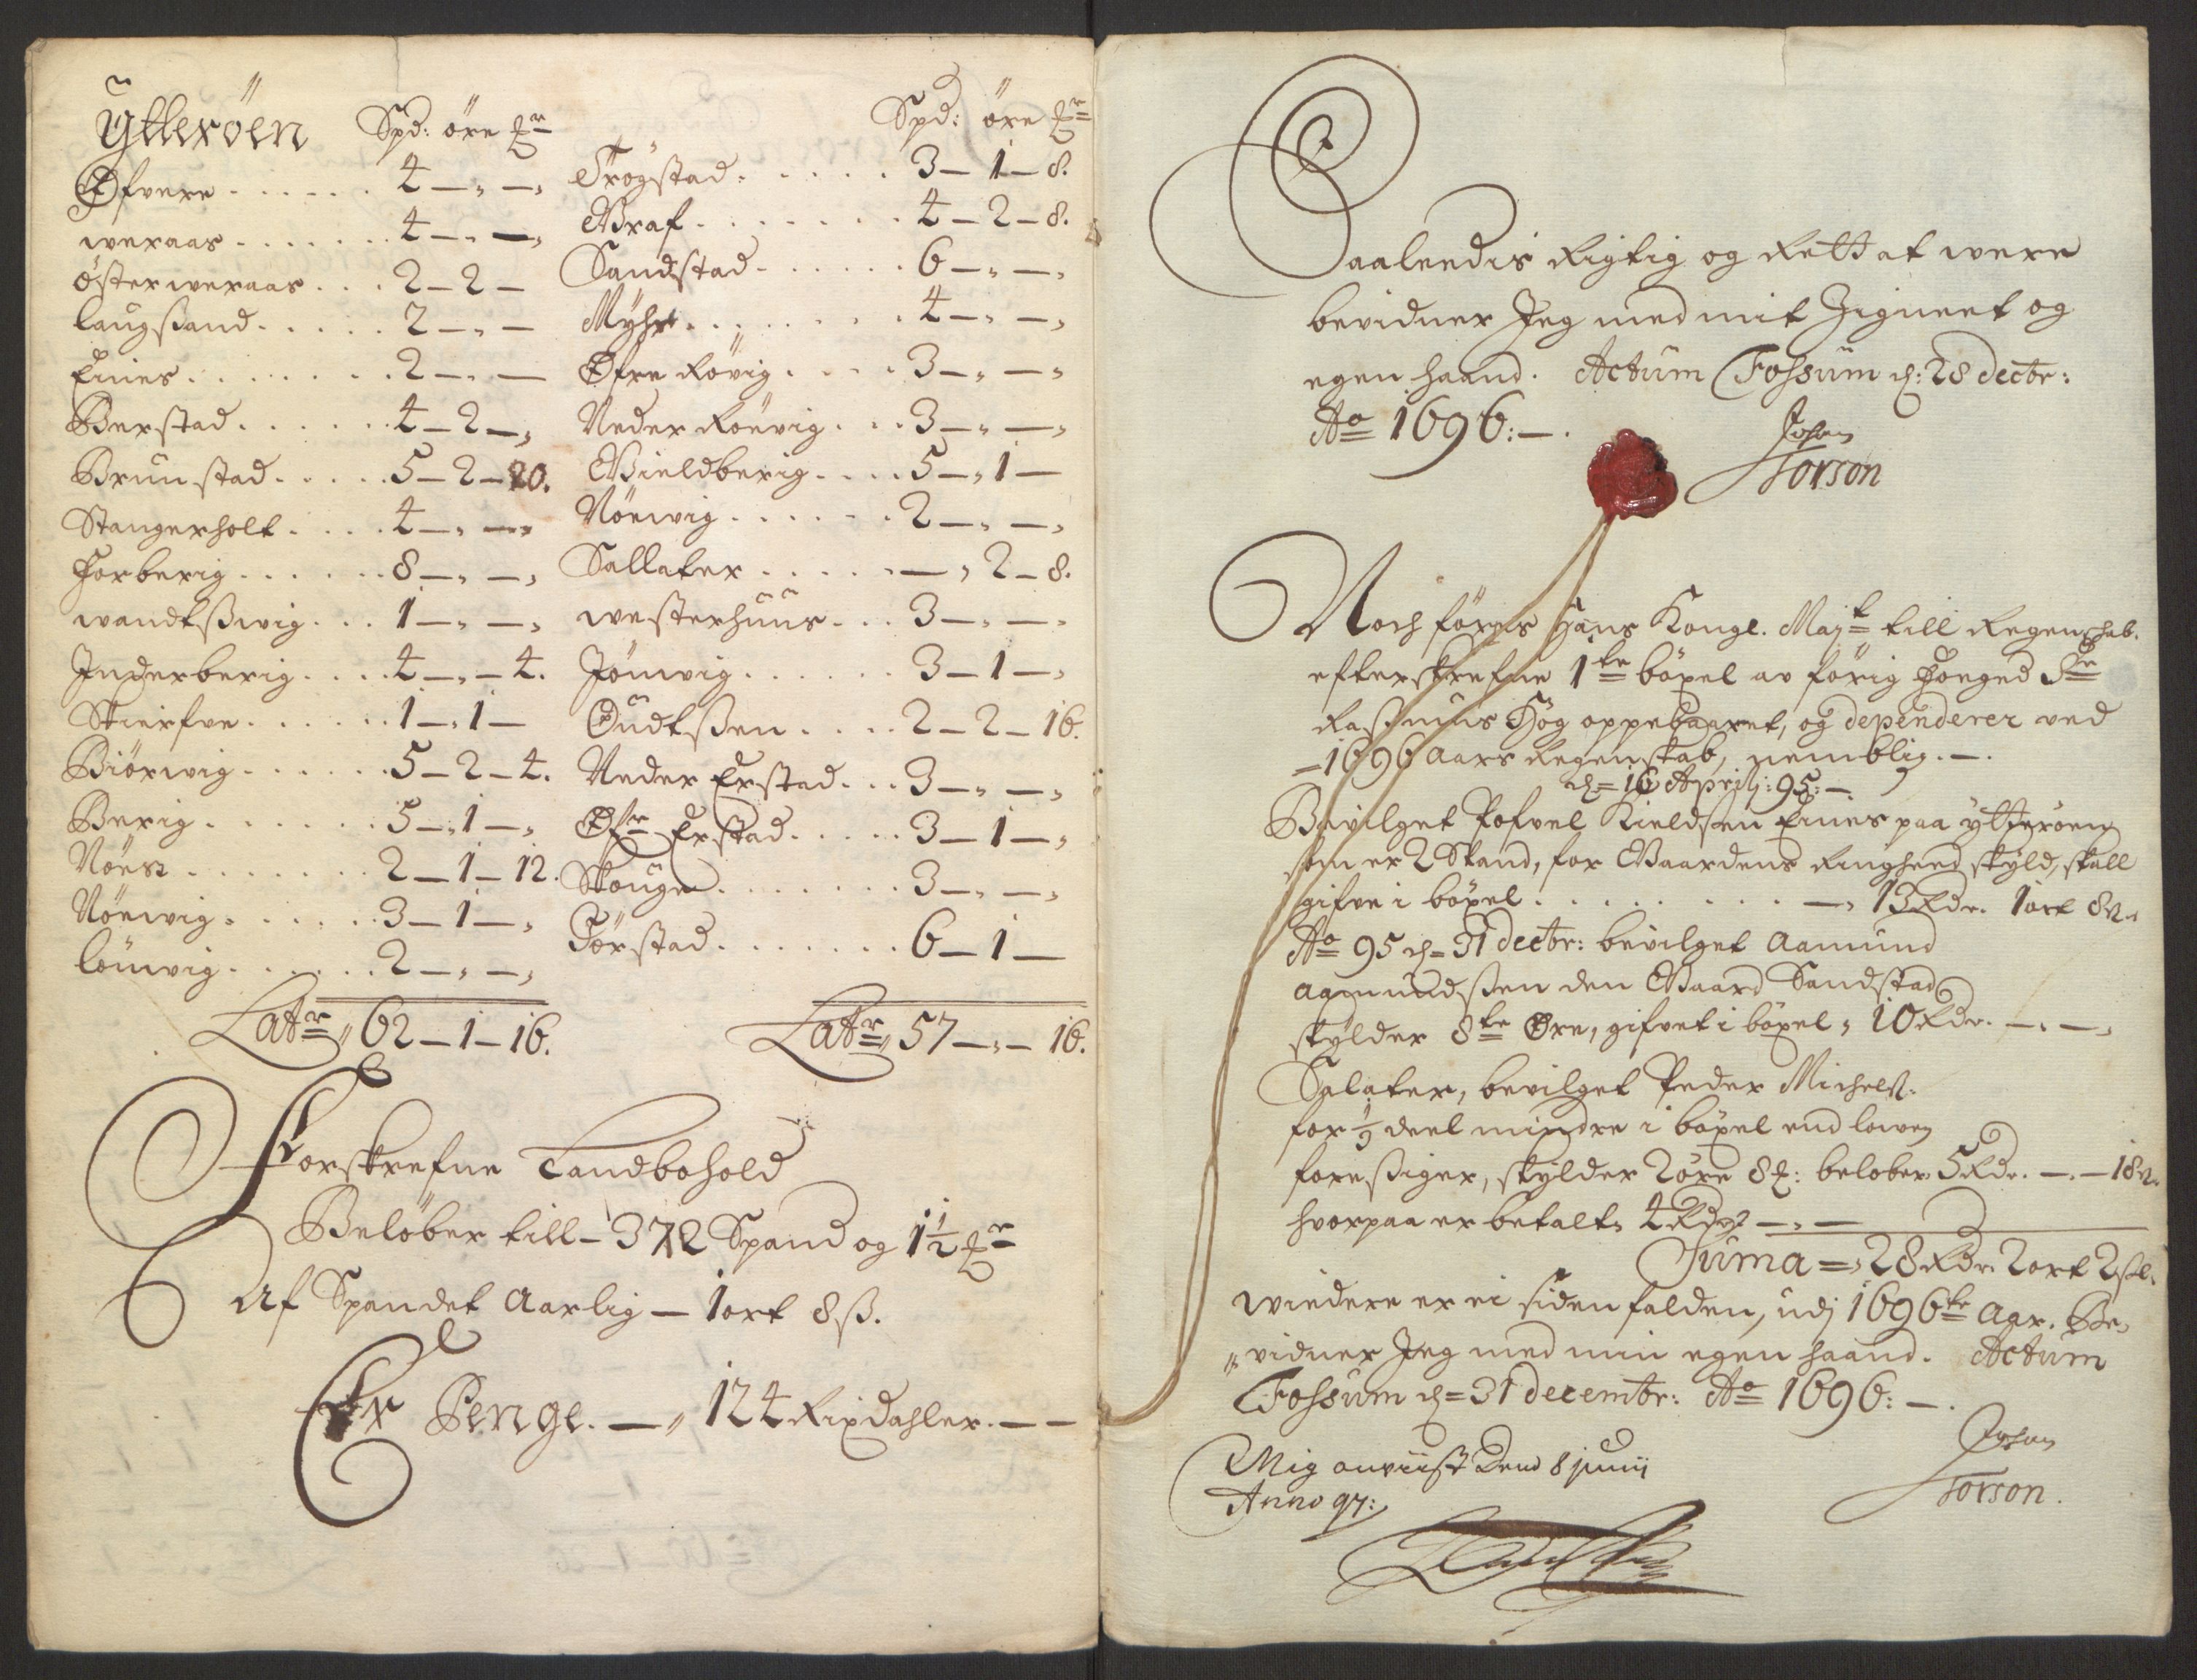 Ytterøen Spd: öre Lr
Øfvere . . . . . . 4 — „ — „
weraas . . . . . . 4 — „ — „
österweraas . . . 2 — 2 —
laugsand . . . . . 2 — „ —
Eines . . . . . . . 2 — „ —
Berstad . . . . . . 4 — 2 — „
Brunstad . . . . . 5 — 2 — 20.
Stangerholt . . . . 4 — „ — „
Forberig . . . . . . 8 — „ — „
wandtßwig . . . 1 — „ — „
Inderberig . . . . 4 — „ — 4.
Skierfve . . . . . . 1 — „ 1 —
Biörwig . . . . . . 5 — 2 — 4.
Berig . . . . . . . 5 — „ 1 — „
Nöest . . . . . . . 2 — 1 — 12.
Nöewig . . . . . . 3 — 1 — „
löuwig . . . . . . 2 — „ — „
Latr „ 62 — 1 — 16.
Spd: öre Lr
Trögstad . . . . . 3 — 1 — 8.
Graf . . . . . . . 4 — 2 — 8.
Sandstad . . . . . . 6 — „ — „
Myhr . . . . . . . 4 — „ — „
Øfre Rövig . . . . 3 — „ — „
Neder Röevig . . . 3 — „ — „
Gieldberig . . . . 5 — „ 1 —
Nöewig . . . . . . 2 — „ — „
Sallater . . . . . — „ 2 — 8.
westerhuus . . . 3 — „ — „
Jönwig . . . . . . 3 — 1 — „
Gudtßen . . . . 2 — 2 — 16.
Neder Erstad . . . 3 — „ — „
Øfre Erstad . . . . . 3 — 1 — „
Skouge . . . . . . . 3 — „ — „
Dörstad . . . . . . . 6 — 1 —
Latr „ 57 — „ — 16.
Forskrefne Landbohold
Belöber till — 372 Spand og 1½ Lr
Af Spandet Aarlig — 1 ort 8 ß.
Er Penge. — „ 124 Rixdahler. — —
Saaledis Rigtig og Rett at were
bevidner Jeg med mit Zigneet og
egen haand. Actum Fossum d: 28 Decbr:
Ao 1696: — .
Johan
Torson
Noch föres Hans Kongl. Majt till Regenschab.
efterskrefne 1te böxel av förig Fouged Sr
Raßmus Hög oppebaaret, og dependerer ved
= 1696 Aars Regenskab, nemblig. — .
d = 16 Aprilj: 95: —
Bevilget Pofvel Kieldsen Eines paa ytteröen
som er 2 Spand, for Gaardens Ringheed skyld, skall
gifve i böxel . . . . . . . — „ 13 Rdr. 1 ort 8 ß.
Ao 95 d = 31 Decbr: bevilget Aamund
Aamundsßen den Gaard Sandstad
skylder 8te Øre, gifvet i böxel „ 10 Rdr. — „ — „
Salater, bevilget Peder Michels:
for ½ deel mindre i böxel end lowen
foresßiger, skylder 2 öre 8 L: belober 5 Rdr. — „ — 18 ß.
hvorpaa er betalt „ 4 Rdr — „ —
Suma = „ 28 Rdr. 2 ort 2 ß.
wiedere er ei siden falden, udj 1696te Aar. Be„
„vidner Jeg med min egen haand. Actum
Fossum d = 31 Decembr: Ao 1696: — .
Johan
Torson.
Mig anviist Dend 8 junij
Anno 97: